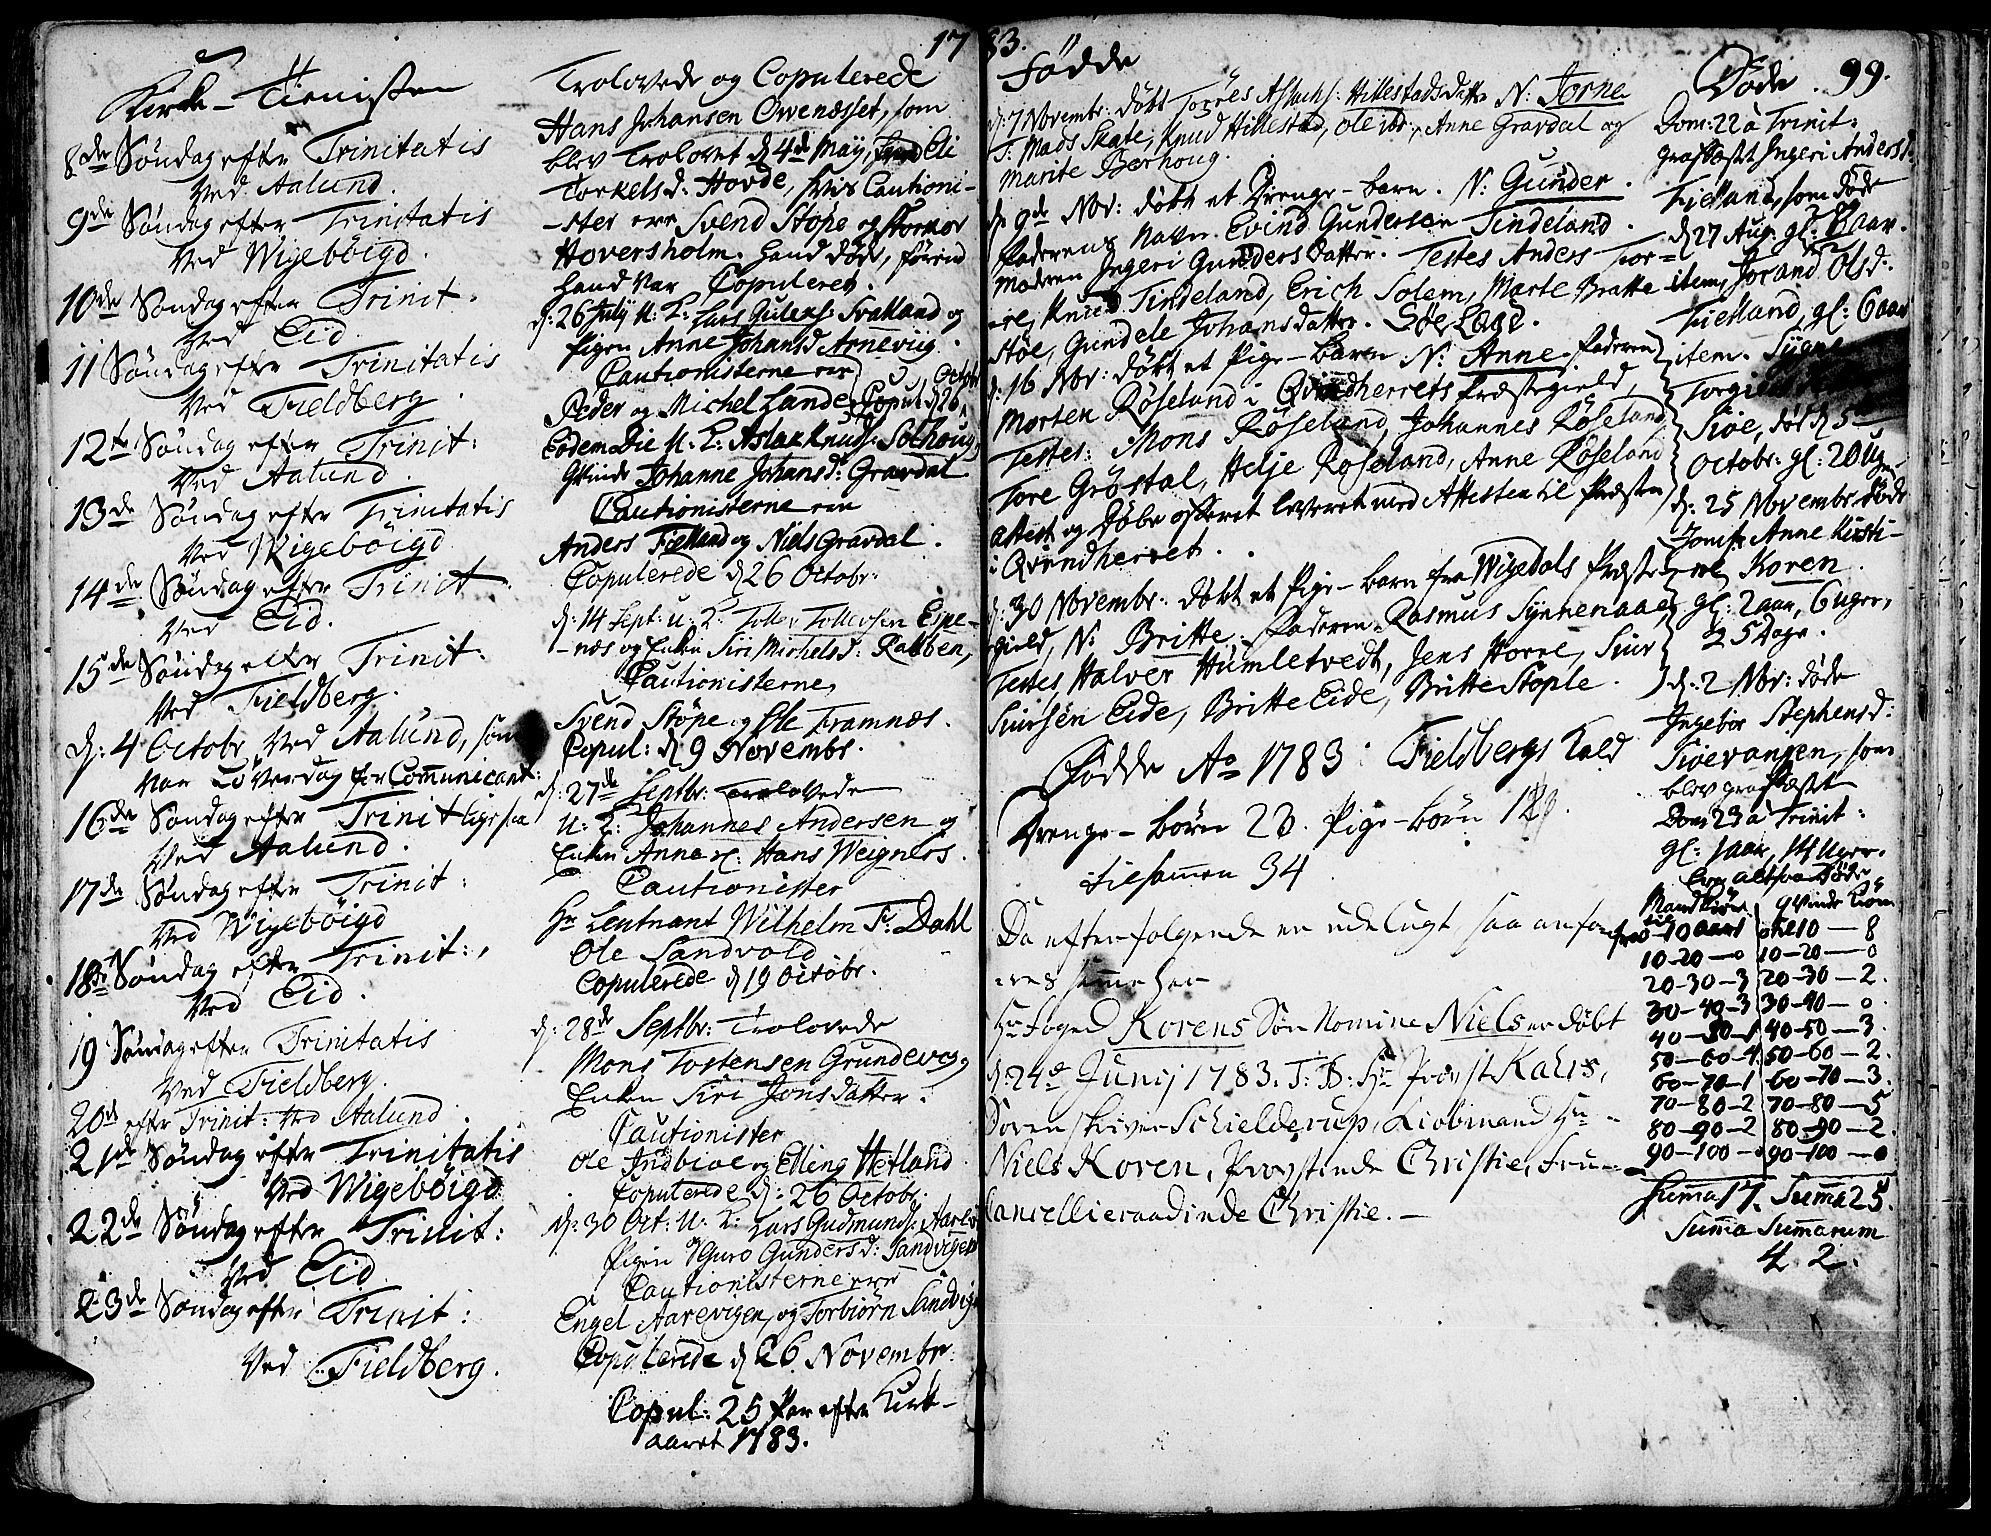 1783.
99.
Kirke-Tienisten
8de Søndag efter Trinitatis
Ved Aalund.
9de Søndag efter Trinitatis
Ved Wigebøigd.
10de Søndag efter Trinit:
Ved Eid
11 Søndag efter Trinitatis
Ved Fieldberg.
12te Søndag efter Trinit:
Ved Aalund.
13de Søndag efter Trinitatis
Ved Wigebøigd
14de Søndag efter Trinit:
Ved Eid.
15de Søndag efter Trinit:
Ved Fieldberg.
d: 4 Octobr. Ved Aalund, som
var Løverdag for Communicant:
16de Søndag efter Trinit: ligesaa
Ved Aalund.
17de Søndag efter Trinit:
Ved Wigebøigd
18de Søndag efter Trinit:
Ved Eid.
19 Søndag efter Trinitatis
Ved Fieldberg.
20de efter Trinit: Ved Aalund.
21de Søndag efter Trinitatis
Ved Wigebøigd
22de Søndag efter Trinit:
Ved Eid
23de Søndag efter Trinit:
Ved Fieldberg.
Trolovede og Copulerede
Hans Johansen Owenæsset, som
blev Trolovet d 4de May, Eli
Torkelsd. Hovde, hvis Cautioni-
-ster ere Svend Støpe og
Hoversholm. hand døde, førend
hand var Copuleret.
d: 26 July U: T: Lars Julens: Svalland og
Pigen Anne Johansd Arnevig.
Cautionisterne ere
Peder og Michel Lande Copul: d 26 Octobr
Eodem Die U: T: Aslak Knuds: Solhoug,
Qvinde Johanne Johansd: Gravdal
Cautionisterne ere
Anders Fielland og Niels Gravdal.
Copulerede d 26 Octobr:
d: 14 Sept: U: T: Tollev Tollevsen Espe-
-næs og Enken Siri Michelsd: Rabben,
Cautionisterne,
Svend Støpe og Ole Framnæs.
Copul: d 9 Novembr.
d: 27de Septbr: Trolovede
U: T: Johannes Andersen og
Enken Anna sl: Hans Weigners.
Cautionister
Hr Leutnant Wilhelm F: Dahl
Ole Sandvold
Copulerede d 19 Octobr.
d: 28de Septbr: Trolovede
Mons Tostensen Grundevog,
Enken Siri Jonsdatter.
Cautionister
Ole Indbioe og Elling Hetland
Copulerede d: 26 Octobr:
d: 30 Oct: U: T: Lars Gudmunds: Aarev
Pigen Guro Gundersd: Sandvigen
Cautionisterne ere
Engel Aarevigen, og Torbiørn Sandvig
Copulerede d 26 Novembr:
Copul: 25 Par efter Kirk-
aaret 1783.
Fødde
d: 7 Novembr: døbt Torres Aslachs: Hillestads datter N: Torne
T: Mads Skate, Knud Hillestad, Ole ibd:, Anne Gravdal og
Marite Berhoug.
d: 9de Nov: døbt et Drenge-barn. N: Gunder.
Faderens Navn Evind Gundersen Tindeland.
Moderen Ingeri Gunders datter. Testes Anders Tor-
re, Knud Tindeland, Erich Solem, Marte Bratte
støe, Gundele Johansdatter.
d: 16 Nov: døbt et Pige-barn N: Anne. Faderen
Morten Røseland i Qvindherrets Præstegield,
Testes: Mons Røseland, Johannes Røseland,
Tore Grøstal, Helje Røseland, Anne Røseland
Attest og Døbe offeret leveret med Attesten til Præsten
i Qvindherret.
d: 30 Novembr: døbt et Pige-barn fra Wigedals Præste
gield, N: Britte. Faderen Rasmus Synnenaae,
Testes Halver Humletvedt, Jens Horre, Siur
Siursen Eide, Britte Eide, Britte Stople.
Fødde Ao 1783: Fieldbergs Kald
Drenge-børn 23. Pige-børn
tilsamen 34
Da efterfølgende er udelugt, saa anføres
samme her
Hr Foged Korens Søn Nomine Niels er døbt
d: 24de Junij 1783. T: B: Hr Provst Kahrs,
Sorenskriver Schielderup, Kiøbmand Hr
Niels Koren, Provstinde Christie, Fru
Cancellieraadinde Christie.
Døde
Dom: 22 a Trinit:
grafæstet Ingeri Andersd.
Fielland, som døde
d 27 Aug: gl: 8 aar.
item, Jorand Olsd:
Fielland, gl: 6 aar
item. Sygne
Torgi
Tioe, død d 5te
Octobr: gl: 20 Uger
d: 25 Novembr døde
Jomfr Anne Kirsti-
ne Koren.
gl: 2 aar, 6 uger,
& 5 Dage.
d: 2 Nov: døde
Ingebor Stephensd:
Tioevangen, som
blev grafæstet
Dom 23 a Trinit:
gl: 1 aar, 14 Uger.
Ere altsaa døde
Mandkiøn qvinde kiøn
til 10 aar 1 til 10 — 8
10-20 — 0 10-20 — 0
20-30 — 3 20-30 — 2.
30-40 — 3 30-40 — 0
40-50 — 1 40-50 — 3.
50-60 — 4 50-60 — 2.
60-70 — 1 60-70 — 3.
70-80 — 2 70-80 — 5
80-90 — 2 80-90 — 2.
90-100 — 0 90-100 — 0
Suma 17. Suma 25.
Suma Sumarum
42.